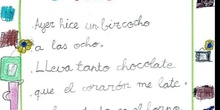 Ayer hice un bizcocho
a las ocho.
Lleva tanto chocolate
que el corazón me late.